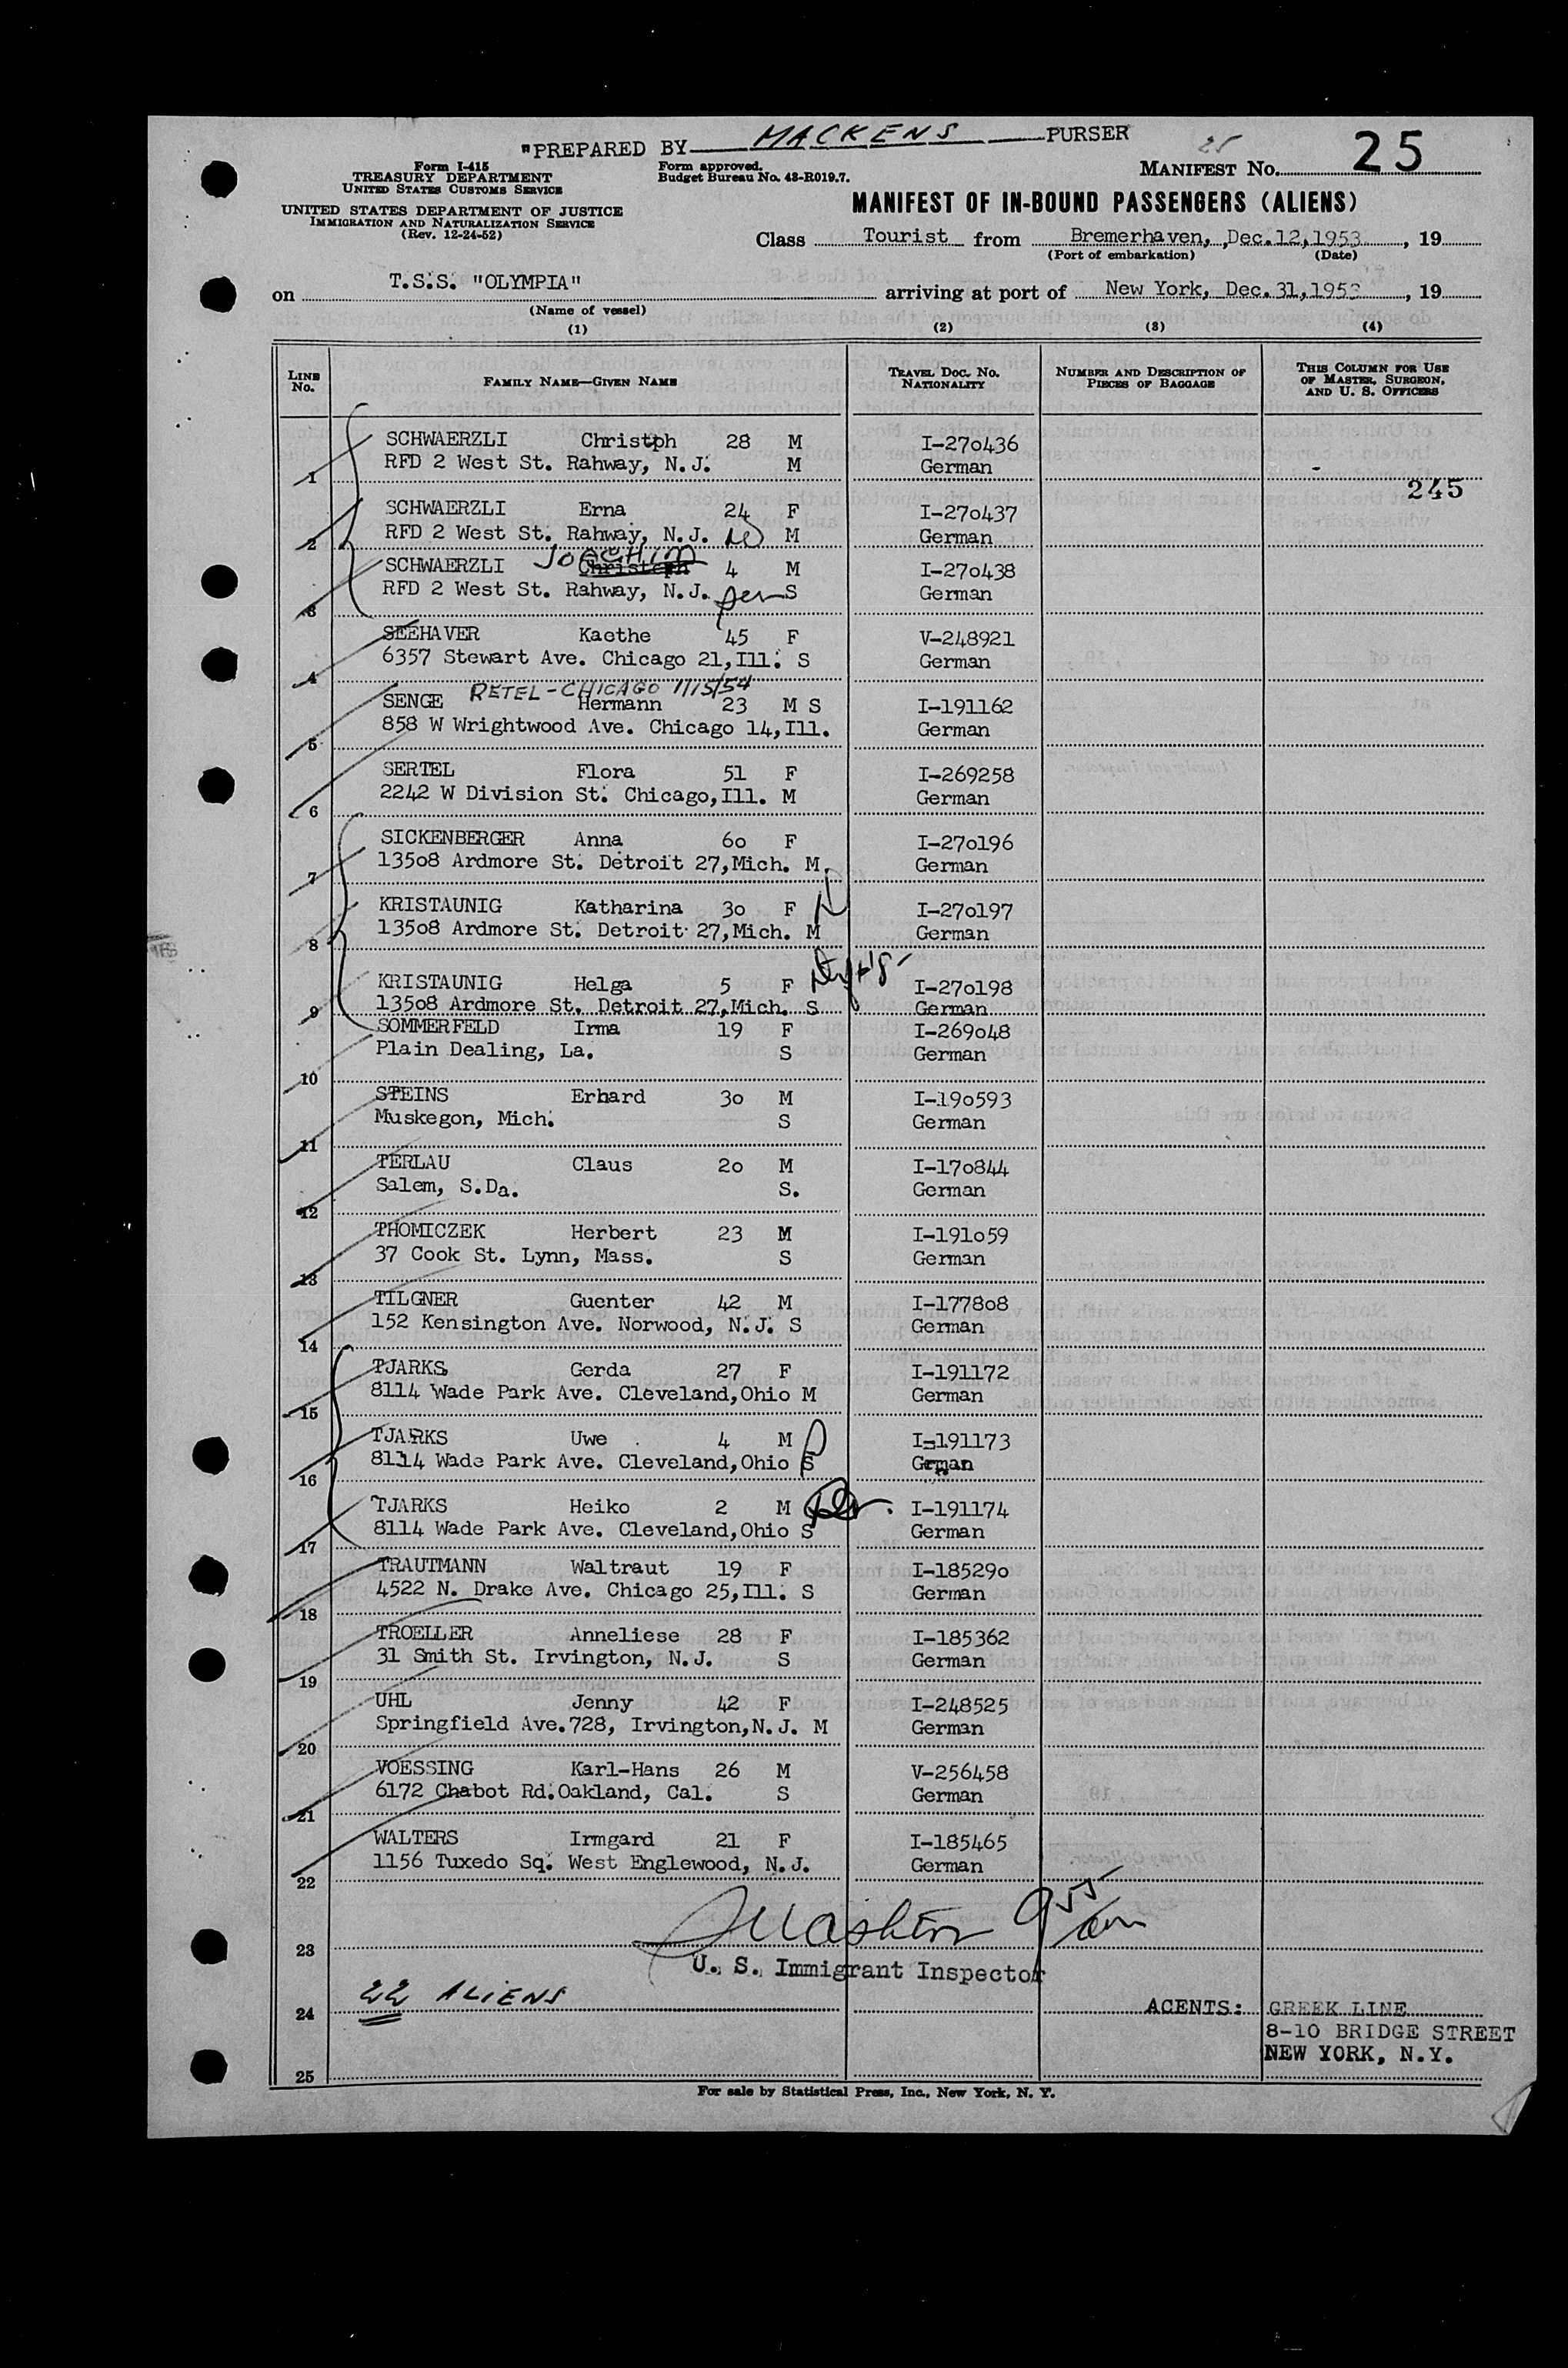 "PREPARED BY MACKENS PURSER
Form I-415
TREASURY DEPARTMENT
UNITED STATES CUSTOMS SERVICE
Form approved.
Budget Bureau No. 43-R019.7.
25
MANIFEST No. 25
UNITED STATES DEPARTMENT OF JUSTICE
IMMIGRATION AND NATURALIZATION SERVICE
(Rev. 12-24-52)
MANIFEST OF IN-BOUND PASSENGERS (ALIENS)
Class Tourist from Bremerhaven, Dec.12,1953, 19
(Port of embarkation) (Date)
on T.S.S. "OLYMPIA" arriving at port of New York, Dec.31,1953, 19
(Name of vessel)
(1) (2) (3) (4)
LINE No. FAMILY NAME—GIVEN NAME TRAVEL DOC. NO. NATIONALITY NUMBER AND DESCRIPTION OF PIECES OF BAGGAGE THIS COLUMN FOR USE OF MASTER, SURGEON, AND U. S. OFFICERS
SCHWAERZLI Christph 28 M I-270436
1 RFD 2 West St. Rahway, N.J. M German
245
SCHWAERZLI Erna 24 F I-270437
2 RFD 2 West St. Rahway, N.J. M German
JOACHIM
SCHWAERZLI Christoph 4 M I-270438
3 RFD 2 West St. Rahway, N.J. S German
SEEHAVER Kaethe 45 F V-248921
4 6357 Stewart Ave. Chicago 21,Ill. S German
RETEL-CHICAGO 1/15/54
SENGE Hermann 23 M S I-191162
5 858 W Wrightwood Ave. Chicago 14,Ill. German
SERTEL Flora 51 F I-269258
6 2242 W Division St. Chicago,Ill. M German
SICKENBERGER Anna 60 F I-270196
7 13508 Ardmore St. Detroit 27,Mich. M German
KRISTAUNIG Katharina 30 F I-270197
8 13508 Ardmore St. Detroit 27,Mich. M German
KRISTAUNIG Helga 5 F I-270198
9 13508 Ardmore St. Detroit 27,Mich. S German
SOMMERFELD Irma 19 F I-269048
10 Plain Dealing, La. S German
STEINS Erhard 30 M I-190593
11 Muskegon, Mich. S German
TERLAU Claus 20 M I-170844
12 Salem, S.Da. S. German
THOMICZEK Herbert 23 M I-191059
13 37 Cook St. Lynn, Mass. S German
TILGNER Guenter 42 M I-177808
14 152 Kensington Ave. Norwood, N.J. S German
TJARKS Gerda 27 F I-191172
15 8114 Wade Park Ave. Cleveland,Ohio M German
TJARKS Uwe 4 M I-191173
16 8114 Wade Park Ave. Cleveland,Ohio S Grman
TJARKS Heiko 2 M I-191174
17 8114 Wade Park Ave. Cleveland,Ohio S German
TRAUTMANN Waltraut 19 F I-185290
18 4522 N. Drake Ave. Chicago 25,Ill. S German
TROELLER Anneliese 28 F I-185362
19 31 Smith St. Irvington, N.J. S German
UHL Jenny 42 F I-248525
20 Springfield Ave.728, Irvington,N.J. M German
VOESSING Karl-Hans 26 M V-256458
21 6172 Chabot Rd.Oakland, Cal. S German
WALTERS Irmgard 21 F I-185465
22 1156 Tuxedo Sq. West Englewood, N.J. German
955
23
U. S. Immigrant Inspector
22 ALIENS
24 AGENTS: GREEK LINE
8-10 BRIDGE STREET
NEW YORK, N.Y.
25
For sale by Statistical Press, Inc., New York, N. Y.